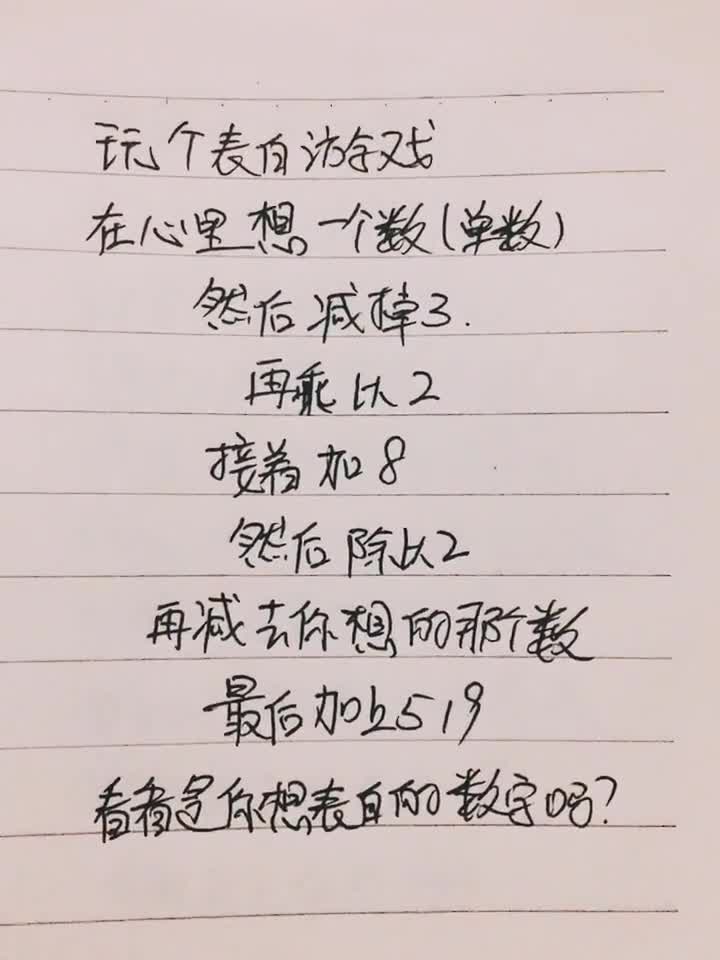 玩个表白游戏
在心里想一个数(单数)
然后减掉3.
再乘以2
接着加8
然后除以2
再减去你想的那个数
最后加上519
看看是你想表白的数字吗?